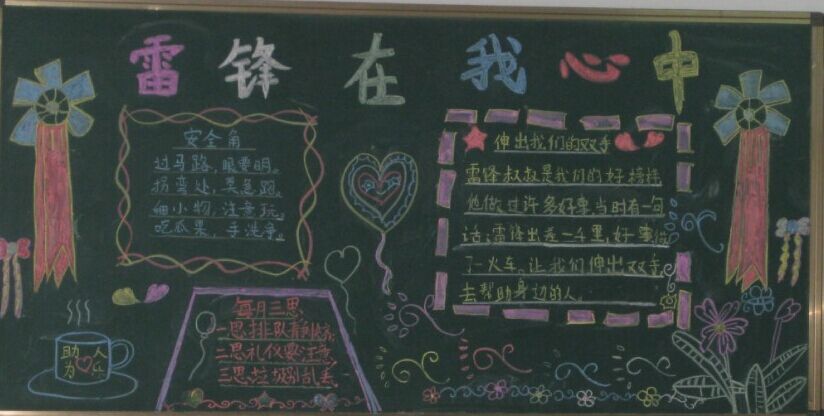 雷锋在我心中
安全角
过马路,眼要明。
拐弯处,莫急跑。
细小物,注意玩。
吃瓜果,手洗净。
伸出我们的双手
雷锋叔叔是我们的好榜样
他做过许多好事当时有一句
话:雷锋出差一千里,好事做
了一火车。让我们伸出双手
去帮助身边的人。
每月三思
一思排队静
二思礼仪要注意
三思垃圾别乱丢
助人
为